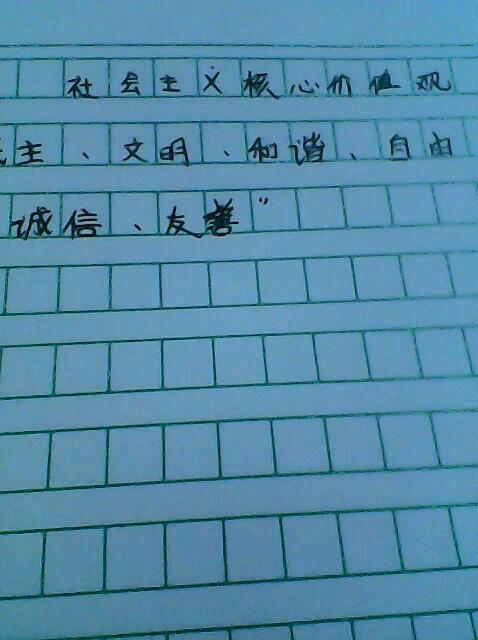 社会主义核心价值观
民主、文明、和谐、自由
诚信、友善”